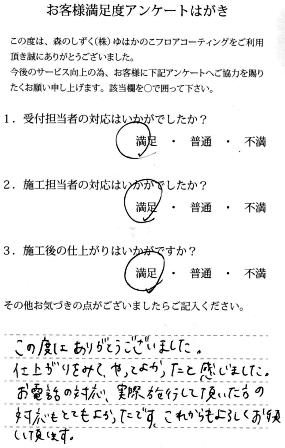 お客様満足度アンケートはがき
この度は、森のしずく(株)ゆはかのこフロアコーティングをご利用
頂き誠にありがとうございました。
今後のサービス向上の為、お客様に下記アンケートへご協力を賜り
たくお願い申し上げます。該当欄を〇で囲って下さい。
1．受付担当者の対応はいかがでしたか？
満足 ・ 普通 ・ 不満
2．施工担当者の対応はいかがでしたか？
満足 ・ 普通 ・ 不満
3．施工後の仕上がりはいかがですか？
満足 ・ 普通 ・ 不満
その他お気づきの点がございましたらご記入ください。
この度はありがとうございました。
仕上がりをみて、やってよかったと感じました。
お電話の対応、実際施行して頂いた方の
対応もとてもよかったです。これからもよろしくお願
い致します。